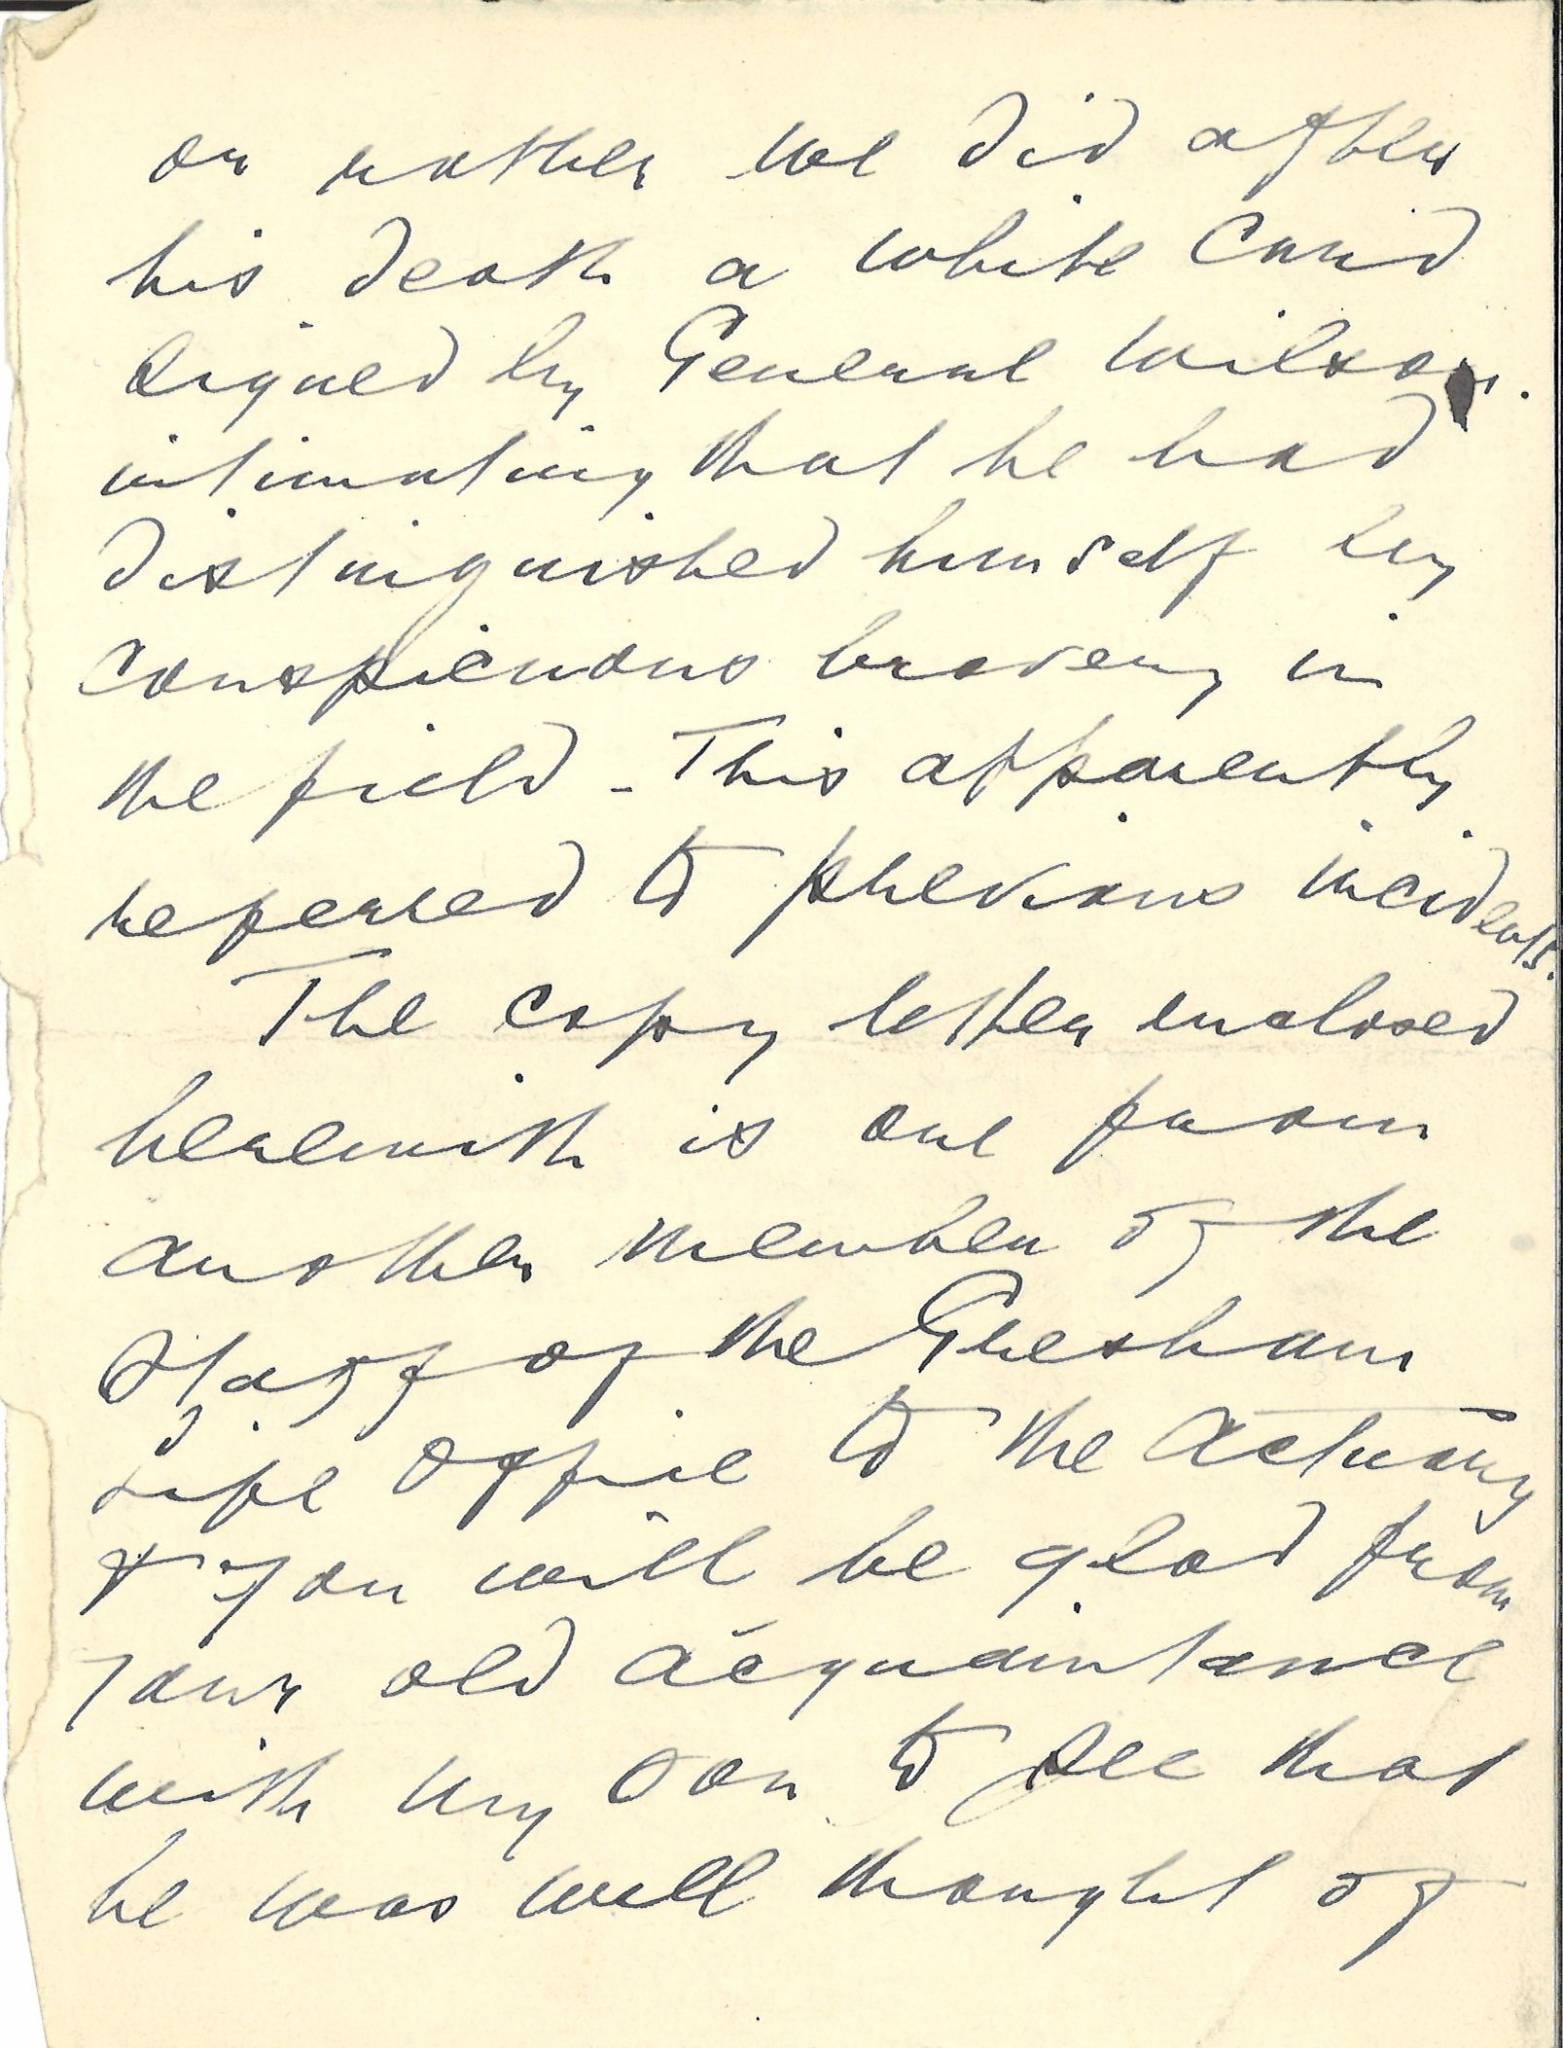 or rather we did after
his death a white Card
signed by General Wilson.
intimating that he had
distinguished himself by
conspicuous bravery in
the field - This apparently
referred to previous incidents.
The copy letter enclosed
herewith is one from
another member of the
Staff of the Gresham
Life Office to the Actuary
& you will be glad from
your old acquaintance
with my son to see that
he was well thought of